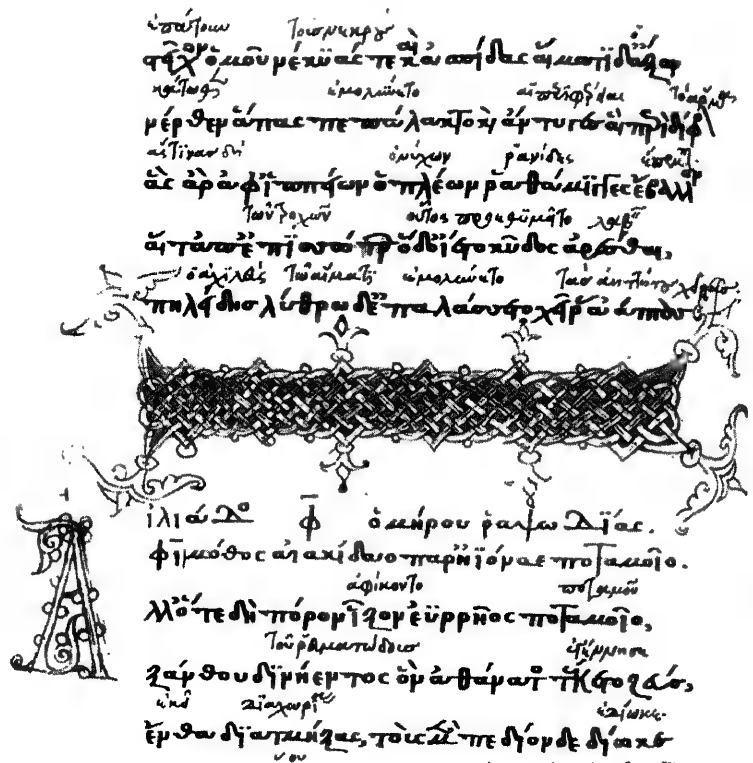 ἐπάτουν τοὺς νεκροὺς
στεῖβον ὁμοῦ νέκυάς τε καὶ ἀσπίδας αἵματι δ' ἄξων
κάτωθεν ἐμολύνετο
νέρθεν ἅπας πεπάλακτο καὶ ἄντυγες αἳ περὶ δίφρον
ἅστινας δὴ ὀνύχων ῥανίδες
ἃς ἄρ' ἀφ' ἱππείων ὁπλέων ῥαθάμιγγες ἔβαλλον
τῶν τροχῶν οὗτος προεθυμεῖτο λαβεῖν
αἵ τ' ἀπ' ἐπισσώτρων ὁ δὲ ἵετο κῦδος ἀρέσθαι,
ὁ ἀχιλλεὺς τῷ αἵματι ἐμολύνετο
πηλείδης λύθρω δὲ παλάσσετο χεῖρας ἀάπτους
ἰλιάδος φ ὁμήρου ῥαψωδίας.
φῖ μόθος αἰακίδαο παρ' ἠϊόνας ποταμοῖο.
ἀφίκοντο ποταμοῦ
Ἀλλ' ὅτε δὴ πόρον ἷξον ἐϋρρῆος ποταμοῖο,
τοῦ ῥευματώδους ἐγέννησε
ξάνθου δινήεντος ὃν ἀθάνατος τέκετο ζεύς,
ἐκεῖ διαχωρίσας ἐδίωκε
ἔνθα διατμήξας, τοὺς μὲν πεδίον δὲ δίωκε